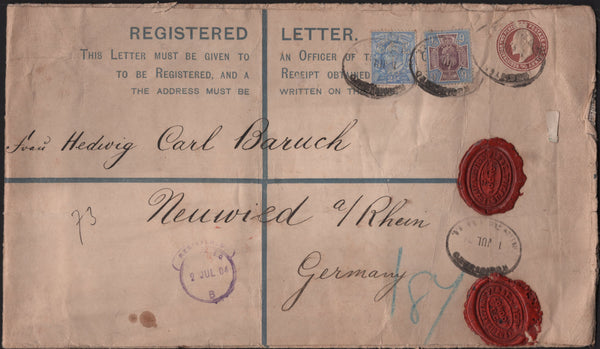 REGISTERED LETTER.
THIS LETTER MUST BE GIVEN TO AN OFFICER OF
TO BE REGISTERED, AND A RECEIPT OBTAINED
THE ADDRESS MUST BE WRITTEN ON
Frau Hedwig Carl Baruch
73
Neuwied a/Rhein
Germany
1 JUL
2 JUL 04
B
187